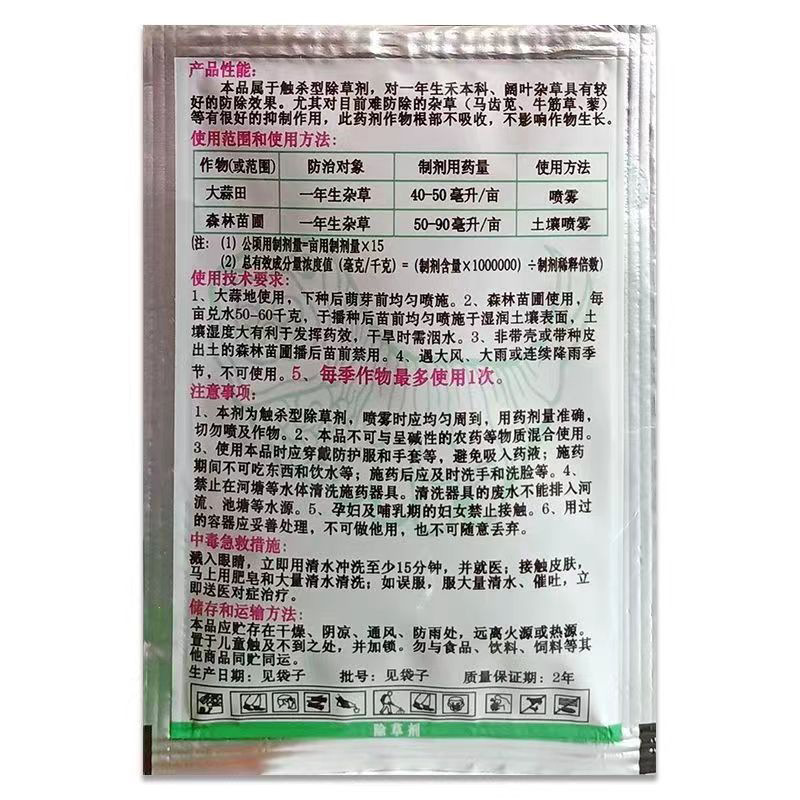 产品性能:
本品属于触杀型除草剂,对一年生禾本科、阔叶杂草具有较
好的防除效果。尤其对目前难防除的杂草(马齿苋、牛筋草、藜)
等有很好的抑制作用,此药剂作物根部不吸收,不影响作物生长。
使用范围和使用方法:
作物(或范围) 防治对象 制剂用药量 使用方法
大蒜田 一年生杂草 40-50毫升/亩 喷雾
森林苗圃 一年生杂草 50-90毫升/亩 土壤喷雾
(注: (1) 公顷用制剂量=亩用制剂量×15
(2) 总有效成分量浓度值(毫克/千克)=(制剂含量×1000000)÷制剂稀释倍数)
使用技术要求:
1、大蒜地使用,下种后萌芽前均匀喷施。2、森林苗圃使用,每
亩兑水50-60千克,于播种后苗前均匀喷施于湿润土壤表面,土
壤湿度大有利于发挥药效,干旱时需洇水。3、非带壳或带种皮
出土的森林苗圃播后苗前禁用。4、遇大风、大雨或连续降雨季
节,不可使用。5、每季作物最多使用1次。
注意事项:
1、本剂为触杀型除草剂,喷雾时应均匀周到,用药剂量准确,
切勿喷及作物。2、本品不可与呈碱性的农药等物质混合使用。
3、使用本品时应穿戴防护服和手套等,避免吸入药液;施药
期间不可吃东西和饮水等;施药后应及时洗手和洗脸等。4、
禁止在河塘等水体清洗施药器具。清洗器具的废水不能排入河
流、池塘等水源。5、孕妇及哺乳期的妇女禁止接触。6、用过
的容器应妥善处理,不可做他用,也不可随意丢弃。
中毒急救措施:
溅入眼睛,立即用清水冲洗至少15分钟,并就医;接触皮肤,
马上用肥皂和大量清水清洗;如误服,服大量清水、催吐,立
即送医对症治疗。
储存和运输方法:
本品应贮存在干燥、阴凉、通风、防雨处,远离火源或热源。
置于儿童触及不到之处,并加锁。勿与食品、饮料、饲料等其
他商品同贮同运。
生产日期:见袋子 批号:见袋子 质量保证期:2年
除草剂